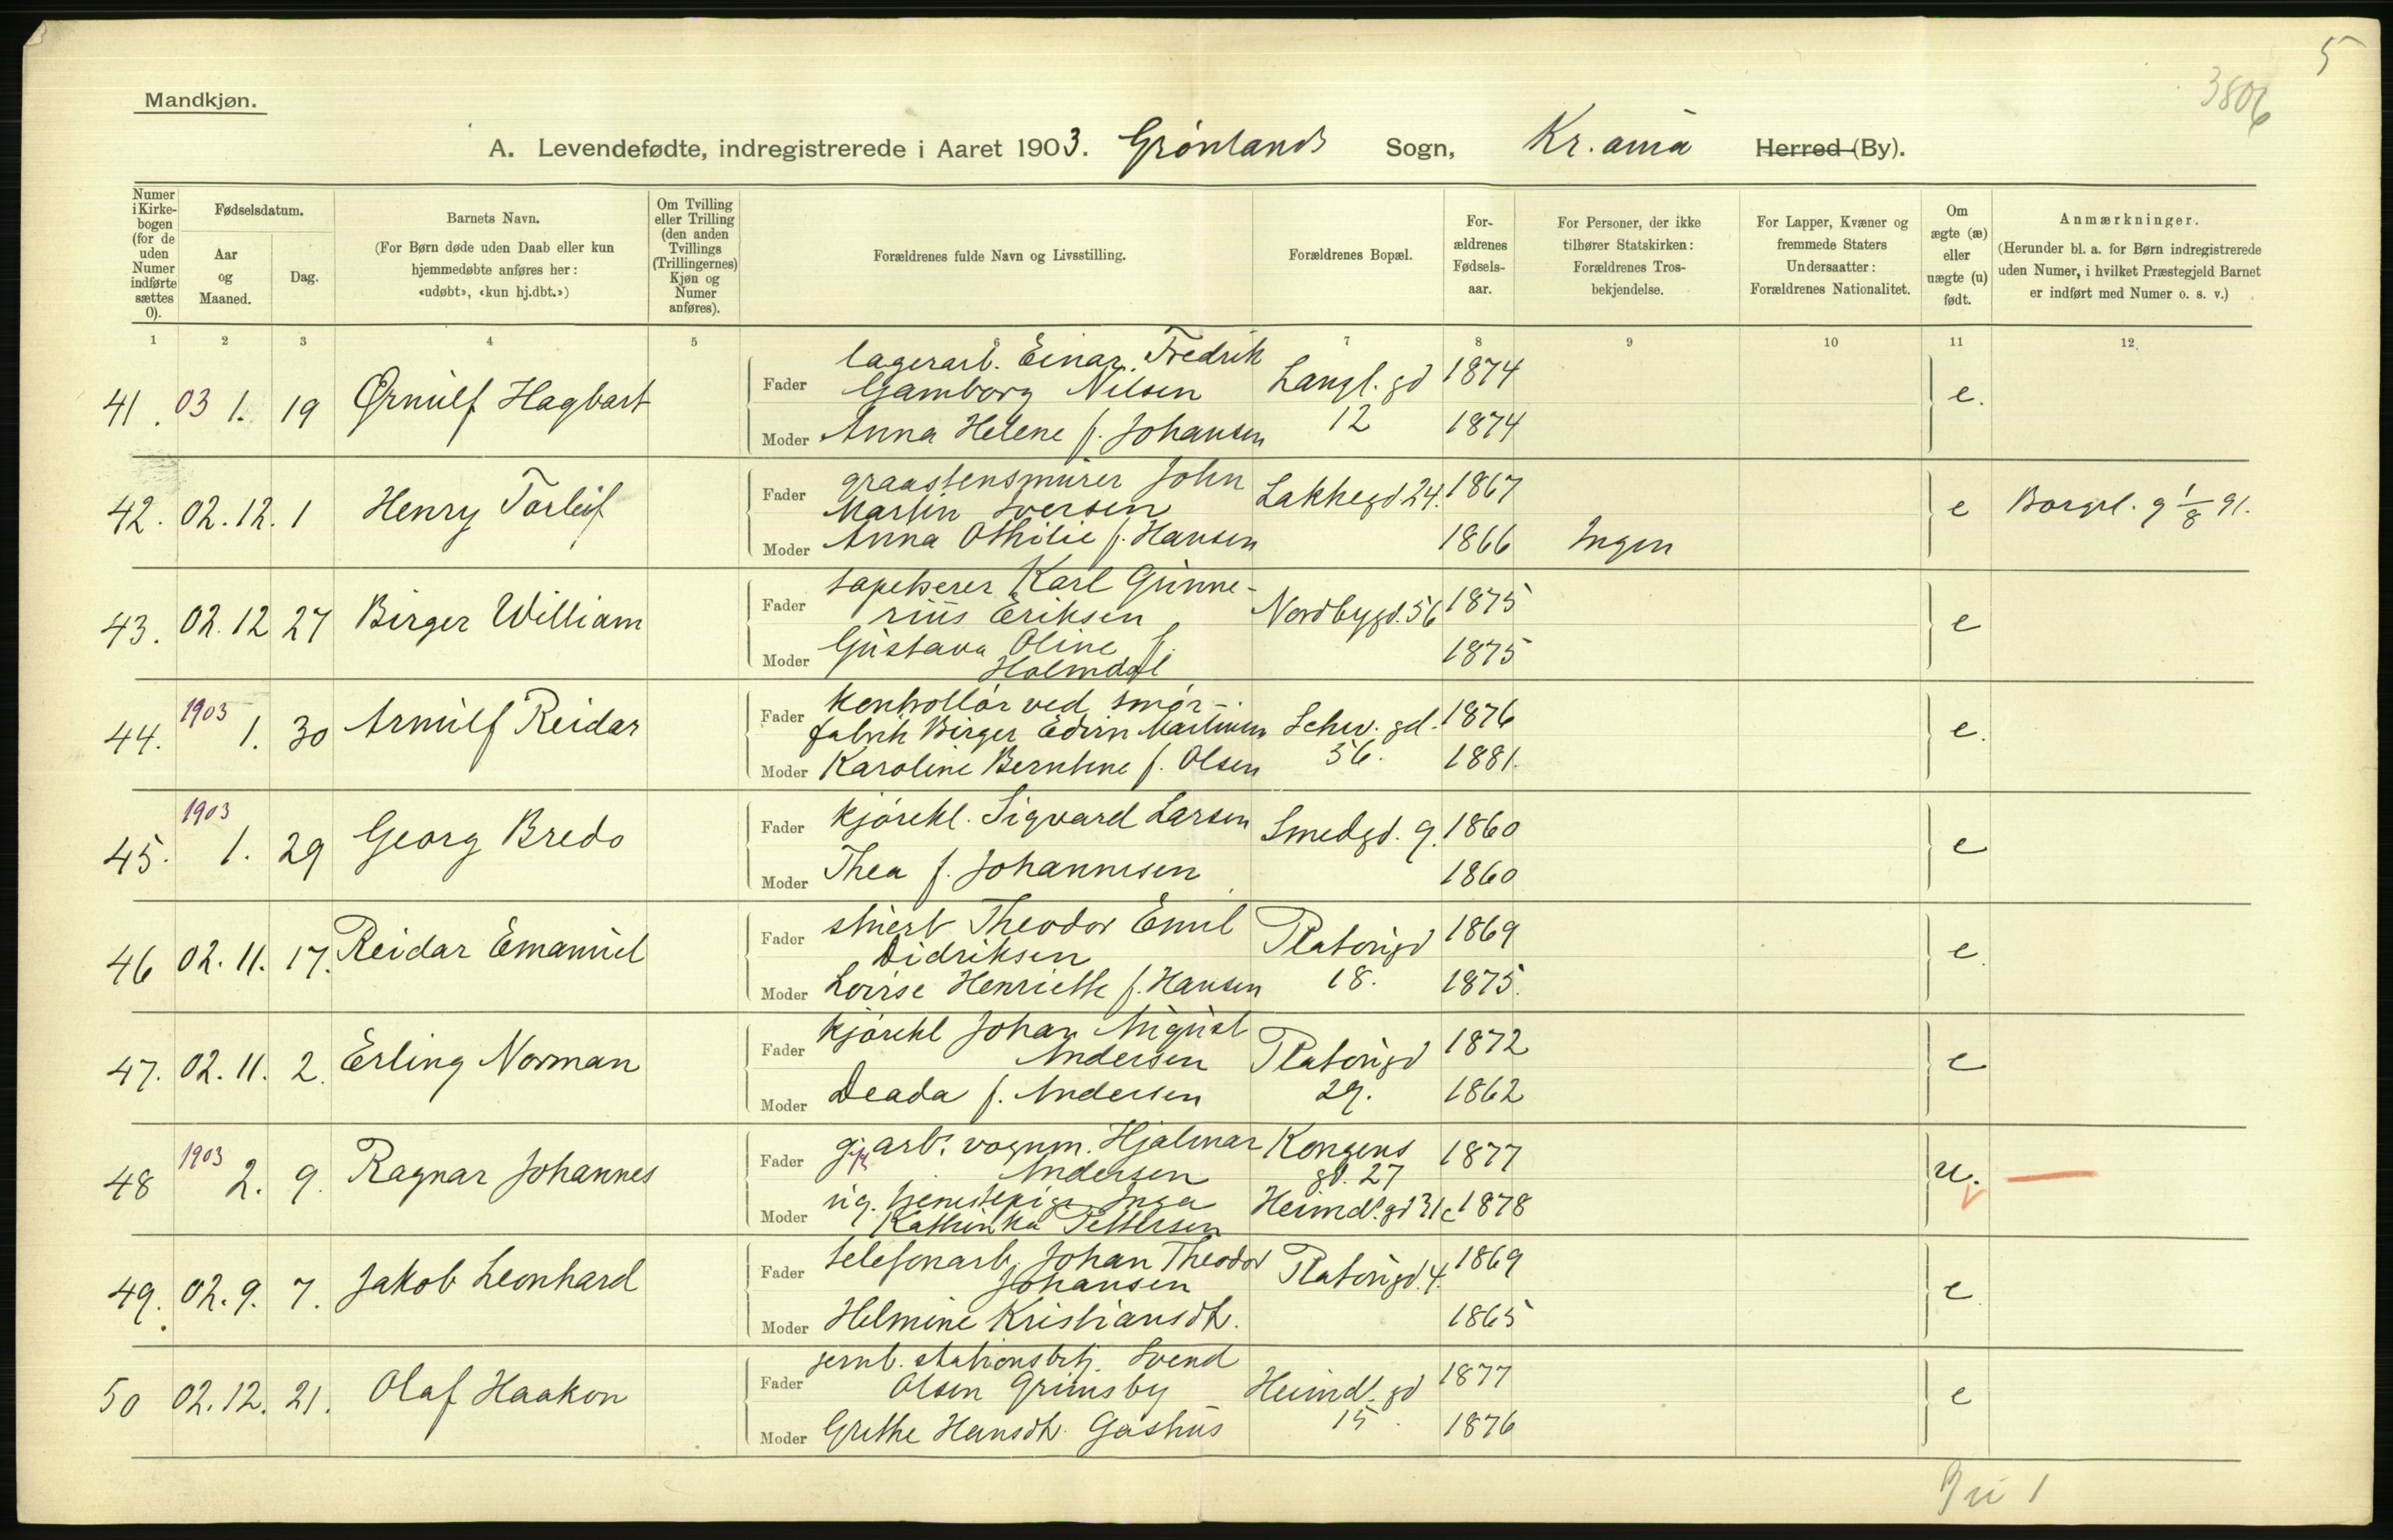 5
3806
Mandkjøn.
A. Levendefødte, indregistrerede i Aaret 1903. Grønlands Sogn, Kr.ania Herred (By).
Numer i Kirkebogen (for de uden Numer indførte sættes 0).
Fødselsdatum.
Aar og Maaned.
Dag.
Barnets Navn.
(For Børn døde uden Daab eller kun hjemmedøbte anføres her: «udøbt», «kun hj.dbt.»)
Om Tvilling eller Trilling (den anden Tvillings (Trillingernes) Kjøn og Numer anføres).
Forældrenes fulde Navn og Livsstilling.
Forældrenes Bopæl.
Forældrenes Fødselsaar.
For Personer, der ikke tilhører Statskirken: Forældrenes Trosbekjendelse.
For Lapper, Kvæner og fremmede Staters Undersaatter: Forældrenes Nationalitet.
Om ægte (æ) eller uægte (u) født.
Anmærkninger.
(Herunder bl. a. for Børn indregistrerede uden Numer, i hvilket Præstegjeld Barnet er indført med Numer o. s. v.)
1 2 3 4 5 6 7 8 9 10 11 12
41. 03 1. 19 Ørnulf Hagbart
Fader lagerarb. Einar Fredrik
Gamborg Nilsen Langl. gd 1874 e.
Moder Anna Helene f. Johansen 12 1874
42. 02.12. 1 Henry Torleif
Fader graastensmurer John
Martin Iversen Lakkegd 24. 1867 e Borgerl. 9 1/8 91.
Moder Anna Othilie f. Hansen 1866 Ingen
43. 02.12 27 Birger William
Fader tapetserer Karl Gunne-
rius Eriksen Nordbygd. 56 1875 e
Moder Gustava Oline f.
Holmdal 1875
44. 1903 1. 30 Arnulf Reidar
Fader kontrollør ved smør-
fabrik Birger Edvin Martinsen Schw. gd. 1876 e.
Moder Karoline Berntine f. Olsen 56. 1881.
45. 1903 1. 29 Georg Bredo
Fader kjørekl. Sigvard Larsen Smedgd. 9. 1860 e
Moder Thea f. Johannesen 1860
46 02.11. 17. Reidar Emanuel
Fader stuert Theodor Emil
Didriksen Platougd 1869 e.
Moder Lovise Henriette f. Hansen 18. 1875.
47. 02.11. 2. Erling Norman
Fader kjørekl Johan August
Andersen Platougd 1872 e
Moder Deada f. Andersen 29. 1862
48 1903 2. 9. Ragnar Johannes
Fader arb. vognm. Hjalmar Kongens
Andersen gd. 27 1877 u.
Moder ug. tjenestepige Inga
Kathinka Pettersen Heimd. gd 31c 1878
49. 02.9. 7. Jakob Leonhard
Fader telefonarb. Johan Theodor
Johansen Platougd. 4. 1869 e
Moder Helmine Kristiansdt. 1865
50 02.12. 21. Olaf Haakon
Fader jernb. stationsbetj. Svend
Olsen Grimsby Heimd. gd 1877 e
Moder Grethe Hansdt. Gashus 15. 1876